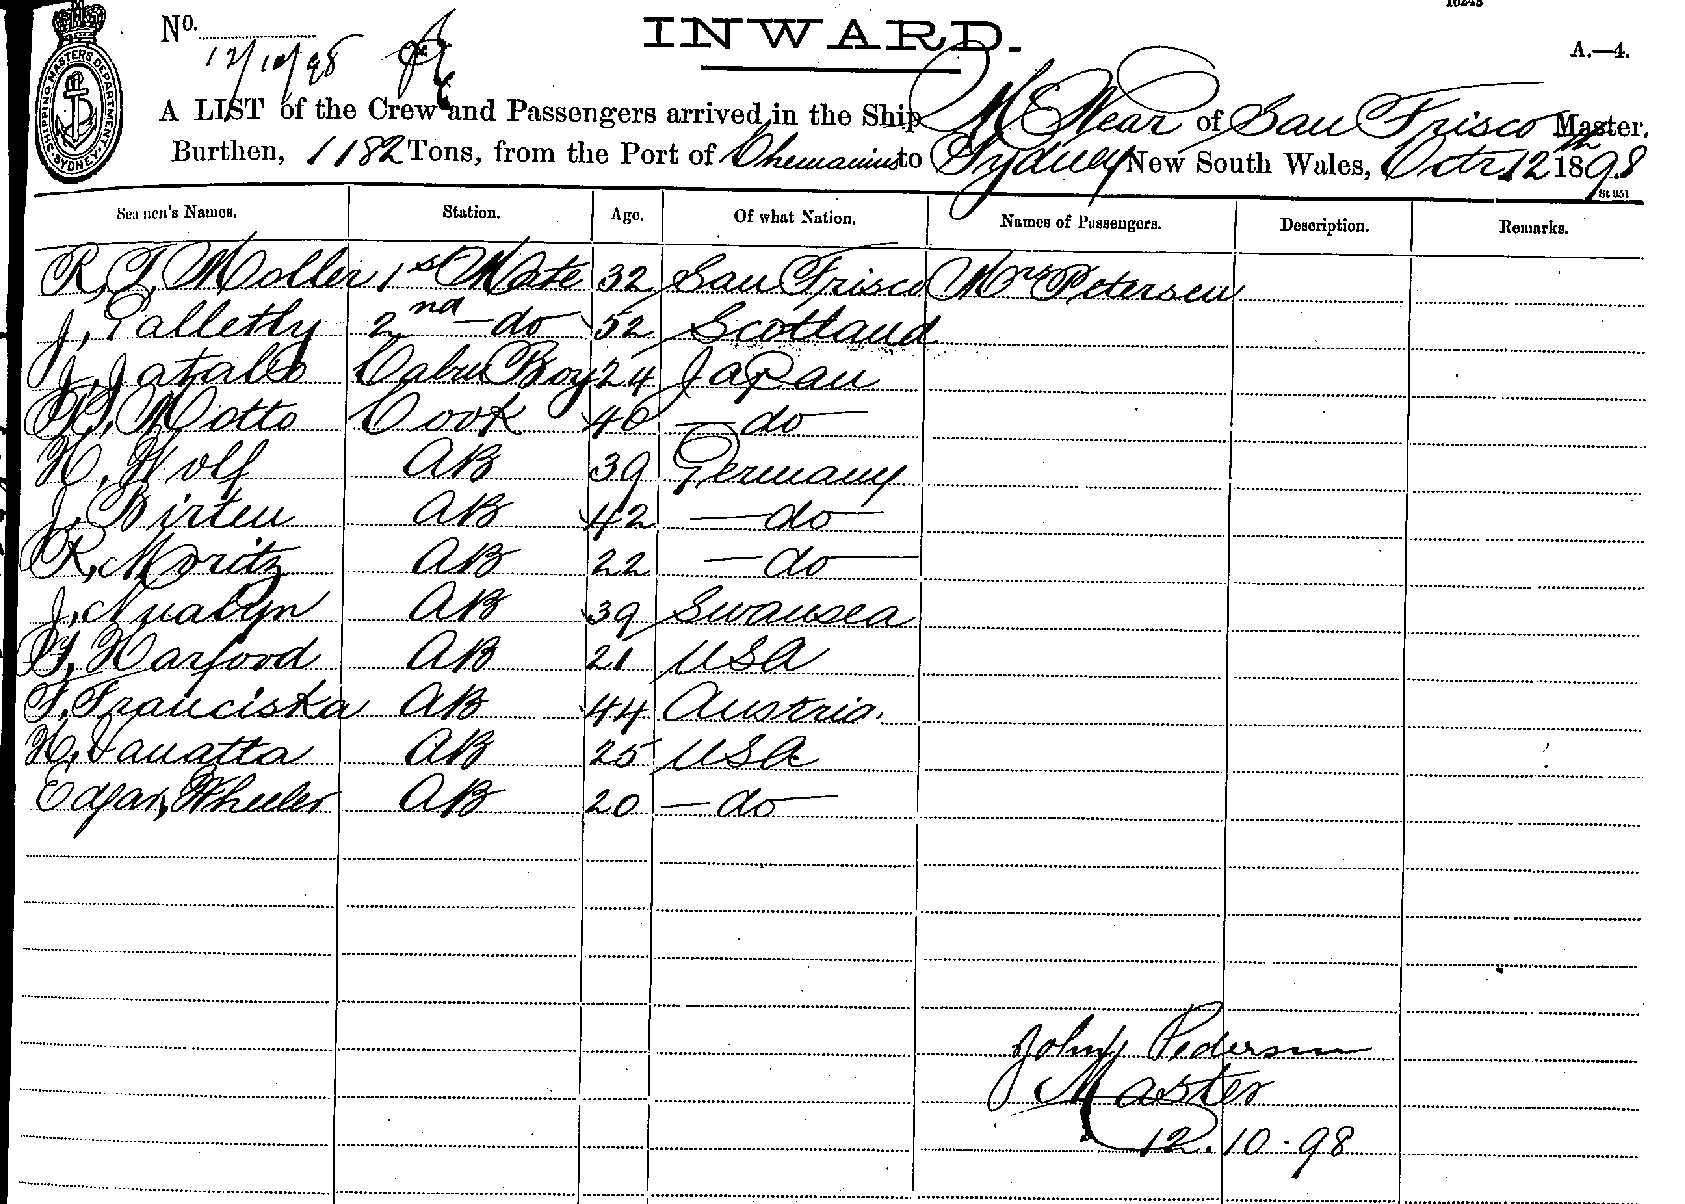 INWARD.
No.
12/10/98
A.—4.
A LIST of the Crew and Passengers arrived in the Ship McNear of San Frisco Master.
Burthen, 1182 Tons, from the Port of Chemainus to Sydney New South Wales, Octr. 12th 1898
SHIPPING MASTERS DEPARTMENT SYDNEY
Seamen's Names. Station. Age. Of what Nation. Names of Passengers. Description. Remarks.
R. T. Moller 1st Mate 32 San Frisco Mrs Petersen
J. Galletly 2nd —do— 52 Scotland
J. Jatabo Cabin Boy 24 Japan
Motto Cook 40 —do—
H. Wolf AB 39 Germany
J. Birten AB 42 —do—
R. Moritz AB 22 —do—
J. AB 39 Swansea
Harford AB 21 USA
F. Franciska AB 44 Austria.
H. Vanatta AB 25 USA
Edgar, Wheeler AB 20 —do—
John Pederson
Master
12.10-98